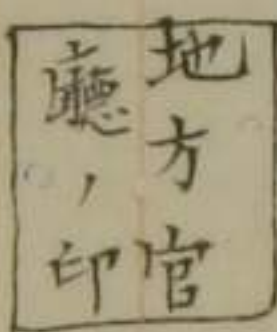 地方官
廳ノ印